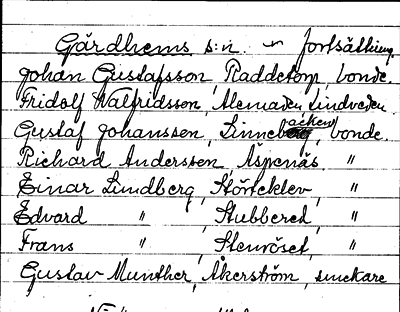 Gärdhems s:n. fortsättning.
Johan Gustafsson, Raddetorp, bonde.
Fridolf Walfridsson, Alemaden Lindveden.
Gustaf Johanssen, Linnebacken, bonde.
Richard Anderssen, Äspenäs "
Einar Lundberg, Störteklev, "
Edvard " , Stubbered, "
Frans " , Stenröset, "
Gustav Munther, Åkerström, snickare